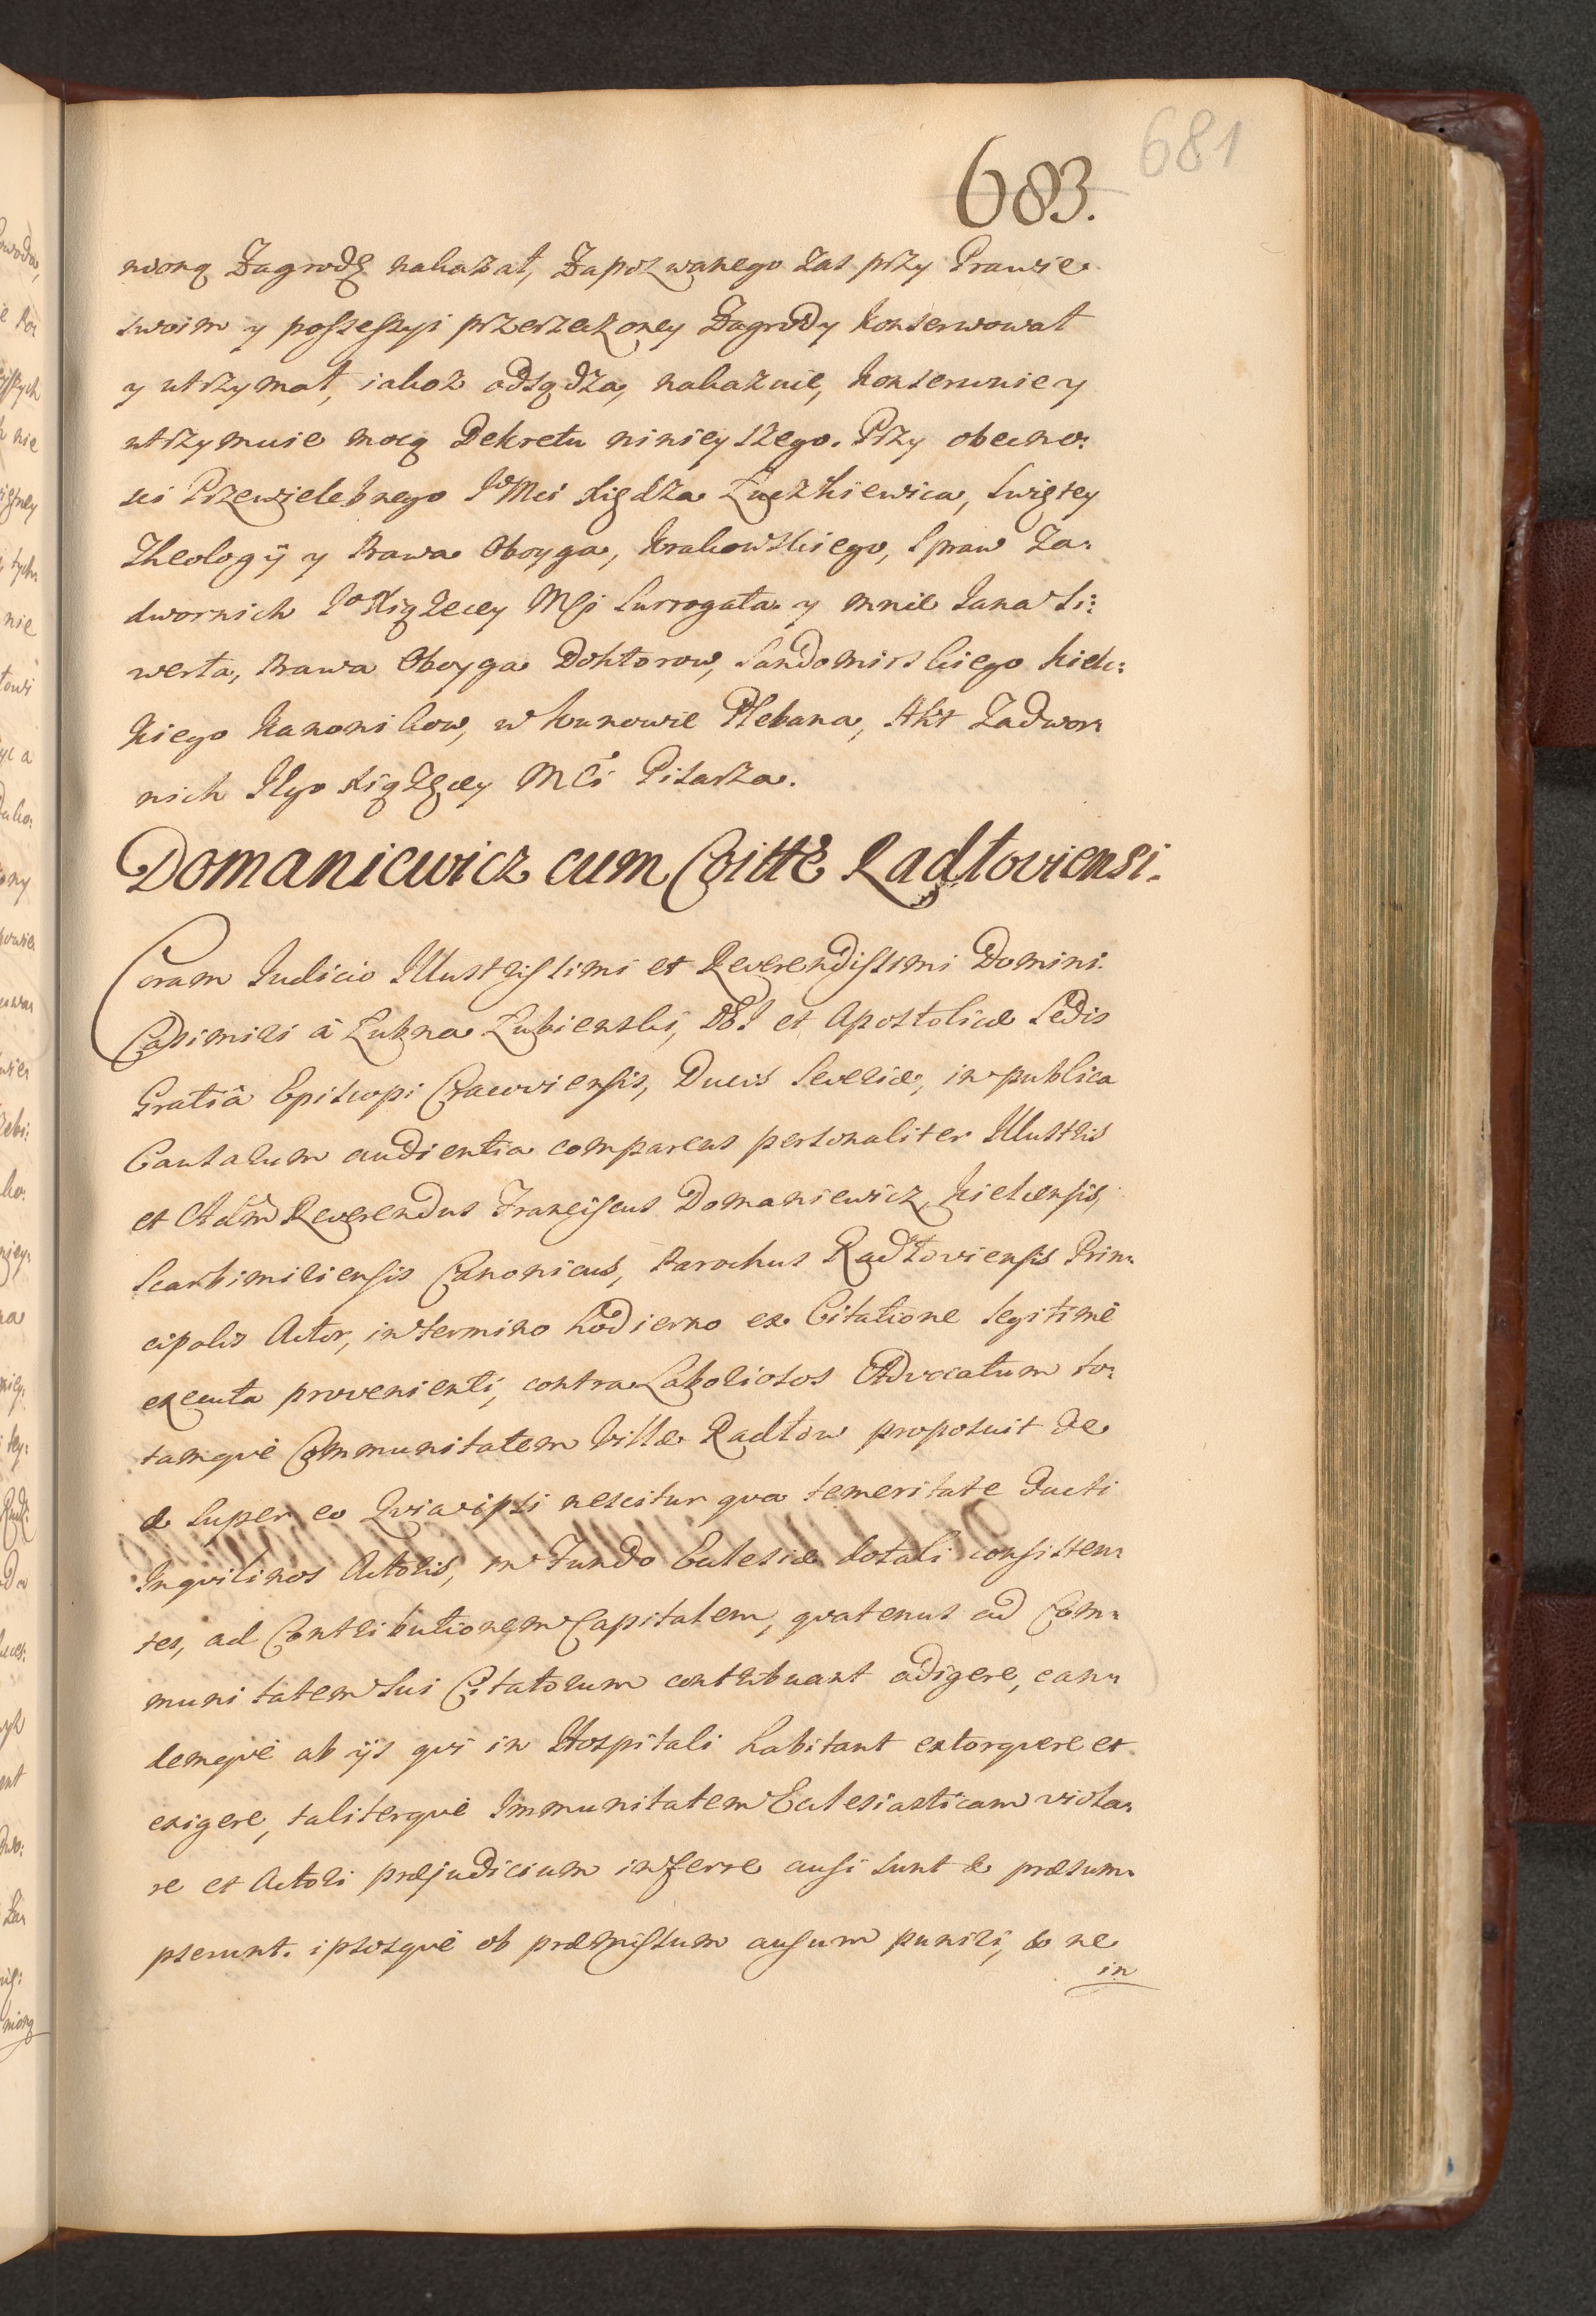 681
683.
nioną Zagrodę nakazał, Zapozwanego zas przy Prawie
swoim y possessyi przerzeczoney Zagrody konserwował
y utrzymał, iakoż odsądza, nakazuie, konserwuie y
utrzymuie mocą Dekretu ninieyszego. Przy obecno:
sci Przewielebnego Jo Mci Xiędza Łuczkiewica, Swiętey
Theologij y Prawa Oboyga, Krakowskiego, Spraw Za:
dwornich Jo Xiążecey Mci Surrogata y mnie Jana Si:
werta, Prawa Oboyga Doktorow, Sandomirskiego Kielc:
kiego Kanonikow, w Kunowie Plebana, Akt Zadwor:
nich Jego Xiążęcey Mci Pisarza.
Domaniewicz cum Coitte Radłoviensi.
Coram Judicio Illustrissimi et Reverendissimi Domini
Casimiri à Łubna Łubienski, Dei et Apostolicæ Sedis
Gratiâ Episcopi Cracoviensis, Ducis Severiæ, in publica
Causarum audientia comparens personaliter Illustris
et Adm Reverendus Franciscus Domaniewicz, Kielcensis,
Scarbimiriensis Canonicus, Parochus Radłoviensis Prin:
cipalis Actor, in termino hodierno ex Citatione legitimè
executa provenienti, contra Laboriosos Advocatum to:
tamquè Communitatem Villæ Radłow proposuit de
& super eo Quia ipsi nescitur qva temeritate ducti
Inquilinos Actoris, in Fundo Ecclesiæ dotali consisten:
tes, ad Contributionem Capitalem, qvatenus ad Com:
munitatem sui Citatorum contribuant adigere, ean:
demquè ab ijs qvi in Hospitali habitant extorqvere et
exigere, taliterquè Immunitatem Ecclesiasticam viola:
re et Actori præjudicium inferre ausi sunt & præsum:
pserunt. ipsosquè ob præmissum ausum puniri, & ne
in